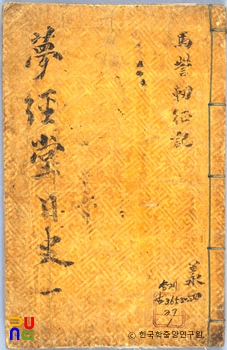 馬訾軔征記
夢經堂日史 一
ⓒ 한국학중앙연구원